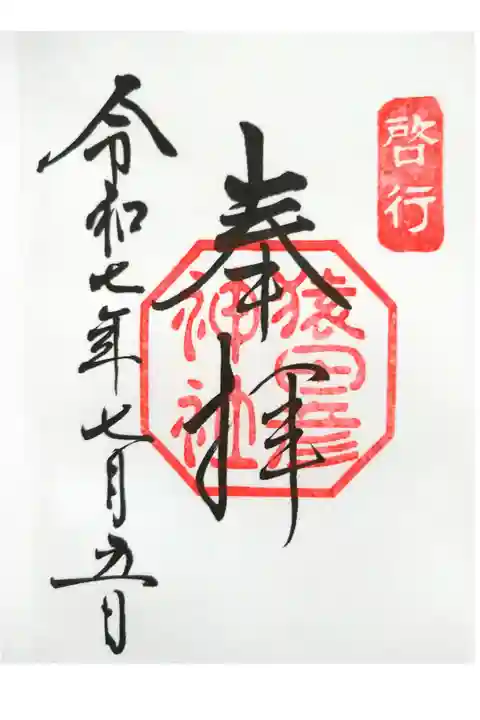 啓行
奉拝
猿田彦
神社
令和七年七月五日